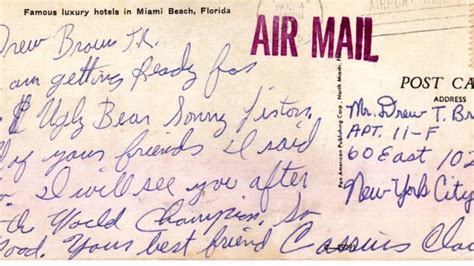 Famous luxury hotels in Miami Beach, Florida
AIR MAIL
Drew Brown Jr.
am getting Ready for
& Ugly Bear Sonny Liston,
of your friends i said
i will see you after
the World Champion. So
Good. Your best friend Cassius Cla
Pan American Publishing Corp., North Miami, F
POST CA
ADDRESS
Mr. Drew T. Br
APT. 11-F
60 East 10
New York City